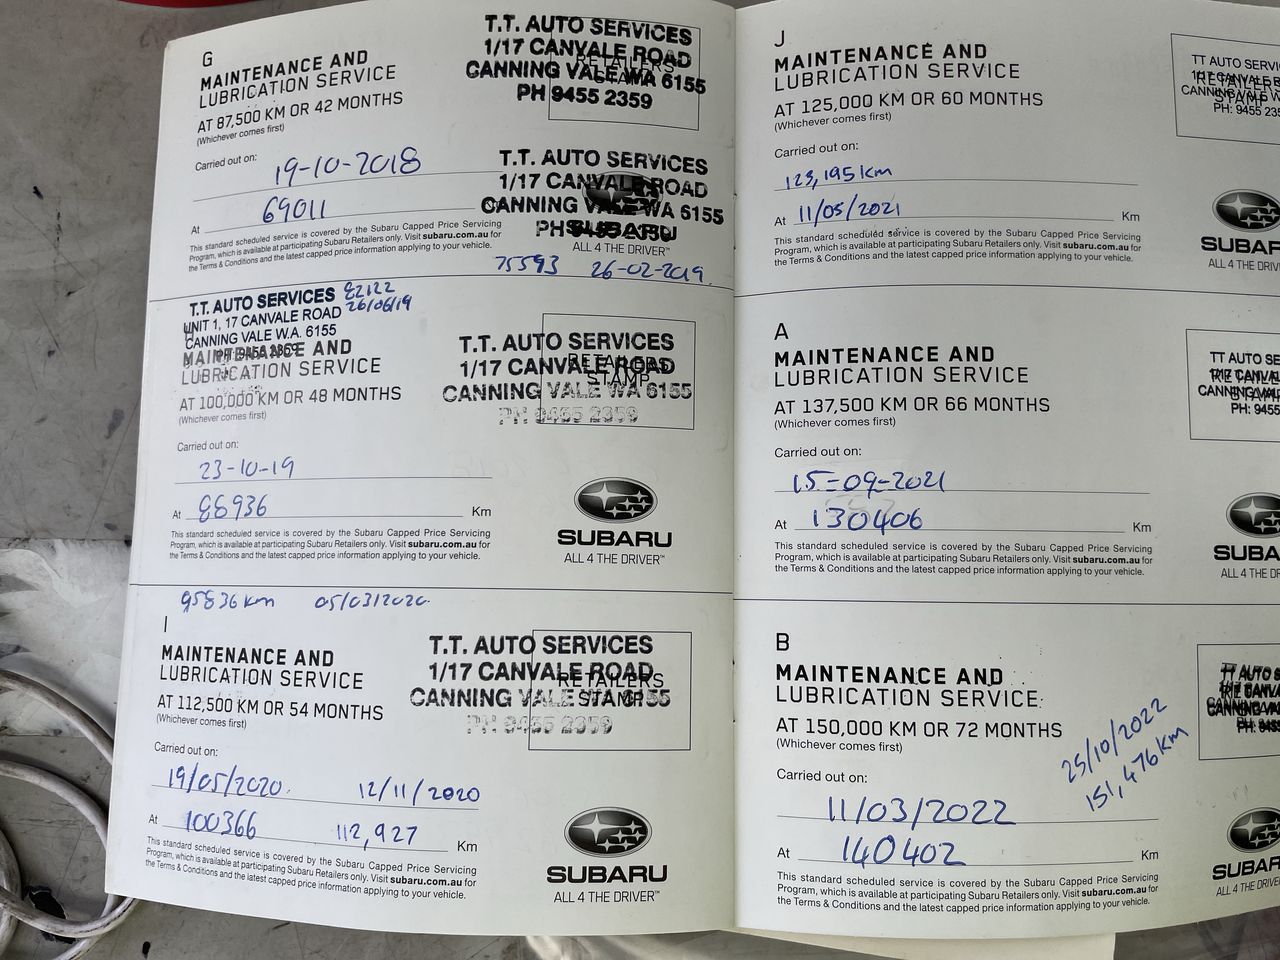 G
MAINTENANCE AND
LUBRICATION SERVICE
AT 87,500 KM OR 42 MONTHS
(Whichever comes first)
T.T. AUTO SERVICES
1/17 CANVALE ROAD
CANNING VALE WA 6155
PH 9455 2359
Carried out on:
19-10-2018
69011
At
T.T. AUTO SERVICES
1/17 CANVALE ROAD
CANNING VALE WA 6155
PH 9455 2359
SUBARU
ALL 4 THE DRIVER™
This standard scheduled service is covered by the Subaru Capped Price Servicing
Program, which is available at participating Subaru Retailers only. Visit subaru.com.au for
the Terms & Conditions and the latest capped price information applying to your vehicle.
75593 26-02-2019
T.T. AUTO SERVICES 82122
UNIT 1, 17 CANVALE ROAD 26/06/19
CANNING VALE W.A. 6155
PH: 9455 2359
MAINTENANCE AND
LUBRICATION SERVICE
AT 100,000 KM OR 48 MONTHS
(Whichever comes first)
T.T. AUTO SERVICES
1/17 CANVALE ROAD
CANNING VALE WA 6155
PH 9455 2359
RETAILERS
STAMP
Carried out on:
23-10-19
At 88936 Km
SUBARU
ALL 4 THE DRIVER™
This standard scheduled service is covered by the Subaru Capped Price Servicing
Program, which is available at participating Subaru Retailers only. Visit subaru.com.au for
the Terms & Conditions and the latest capped price information applying to your vehicle.
95836km 05/03/2020
I
MAINTENANCE AND
LUBRICATION SERVICE
AT 112,500 KM OR 54 MONTHS
(Whichever comes first)
T.T. AUTO SERVICES
1/17 CANVALE ROAD
CANNING VALE WA 6155
PH 9455 2359
RETAILERS
STAMP
Carried out on:
19/05/2020. 12/11/2020
At 100366 112,927 Km
SUBARU
ALL 4 THE DRIVER™
This standard scheduled service is covered by the Subaru Capped Price Servicing
Program, which is available at participating Subaru Retailers only. Visit subaru.com.au for
the Terms & Conditions and the latest capped price information applying to your vehicle.
J
MAINTENANCE AND
LUBRICATION SERVICE
AT 125,000 KM OR 60 MONTHS
(Whichever comes first)
TT AUTO
PH: 9455
Carried out on:
123,195km
At 11/05/2021 Km
ALL 4 THE
This standard scheduled service is covered by the Subaru Capped Price Servicing
Program, which is available at participating Subaru Retailers only. Visit subaru.com.au for
the Terms & Conditions and the latest capped price information applying to your vehicle.
A
MAINTENANCE AND
LUBRICATION SERVICE
AT 137,500 KM OR 66 MONTHS
(Whichever comes first)
TT AUTO
PH: 9455
Carried out on:
15-09-2021
At 130406 Km
ALL 4 THE
This standard scheduled service is covered by the Subaru Capped Price Servicing
Program, which is available at participating Subaru Retailers only. Visit subaru.com.au for
the Terms & Conditions and the latest capped price information applying to your vehicle.
B
MAINTENANCE AND
LUBRICATION SERVICE
AT 150,000 KM OR 72 MONTHS
(Whichever comes first)
25/10/2022
151,476km
Carried out on:
11/03/2022
At 140402 Km
ALL 4 THE
This standard scheduled service is covered by the Subaru Capped Price Servicing
Program, which is available at participating Subaru Retailers only. Visit subaru.com.au for
the Terms & Conditions and the latest capped price information applying to your vehicle.